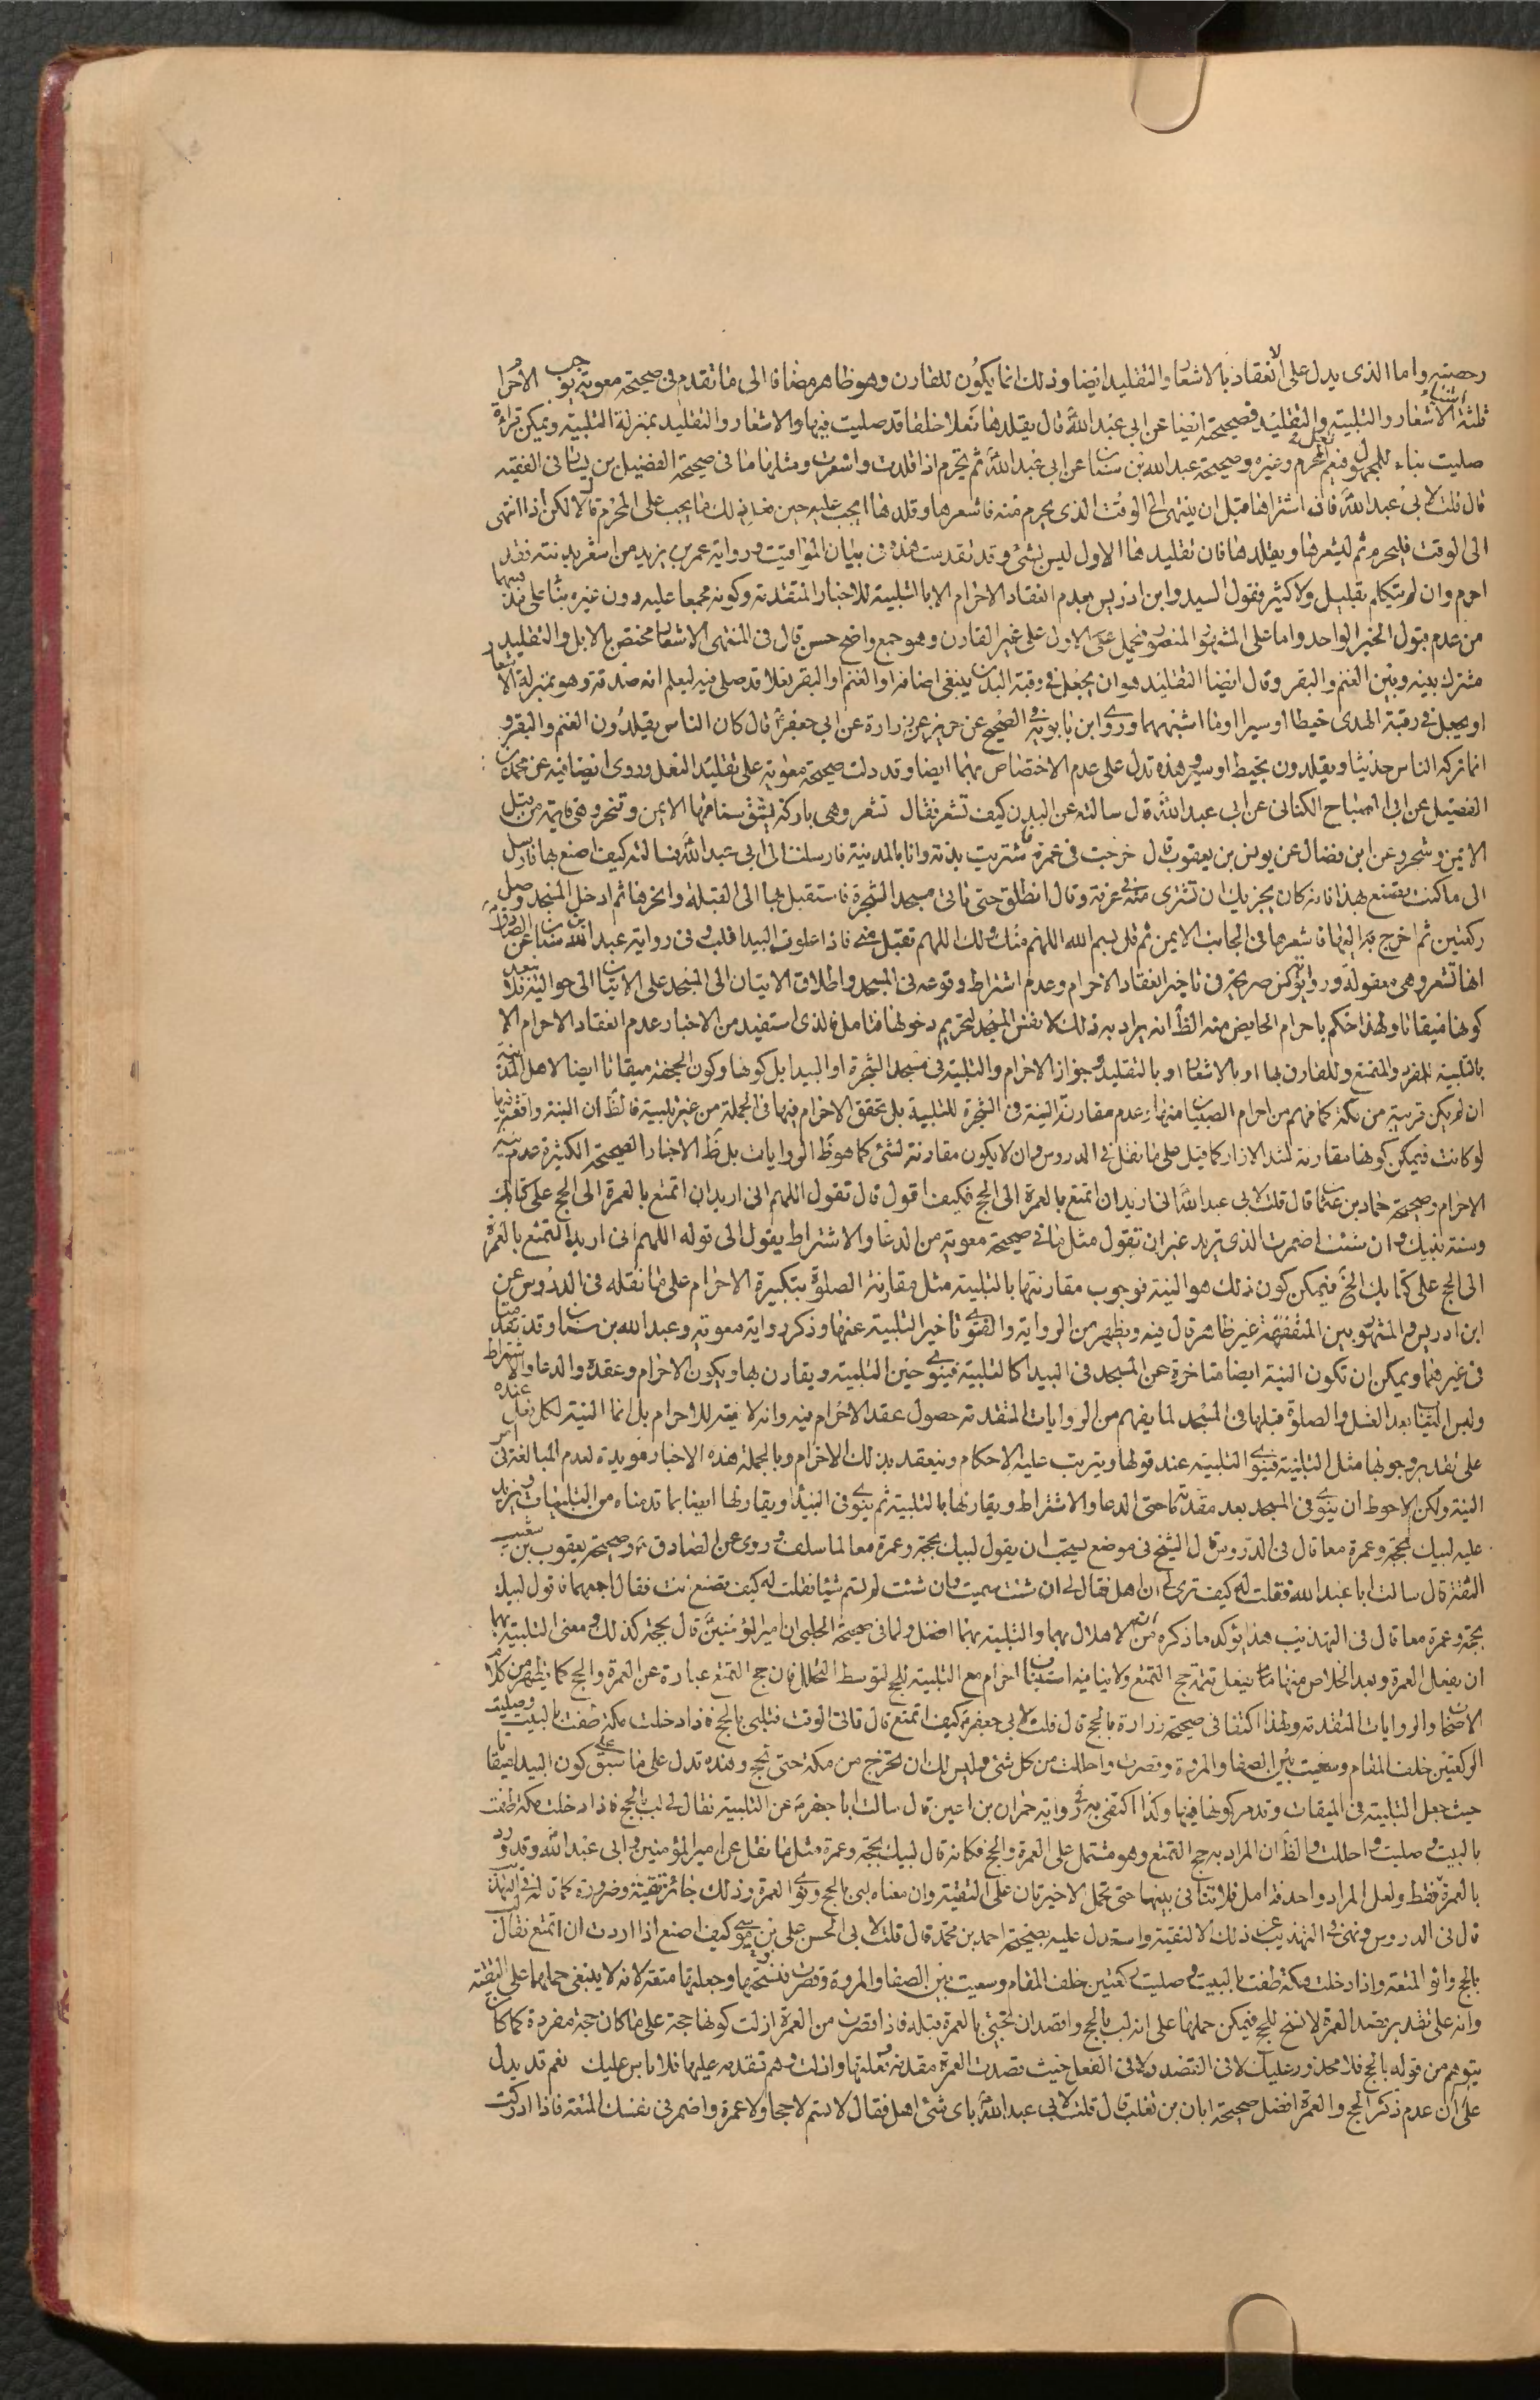 رحمته واما الذى يدل على الانعقاد بالاشعار والتقليد ايضا وذلك انما يكون للقارن وهو ظاهر مضافا الى ما تقدم فى صحيحة معوية يوجب الاحرام
ثلثة اشياء الاشعار والتلبية والتقليد وصحيحته ايضا عن ابى عبد الله قال يقلدها نعلا خلقا قد صليت فيها والاشعار والتقليد بمنزلة التلبية ويمكن قراءة
صليت بناء للمجهول فيعم المحرم وغيره وصحيحة عبد الله بن سنان عن ابى عبد الله ثم يحرم اذا قلدت واشعرت ومثلها ما فى صحيحة الفضيل بن يسار فى الفقيه
قال قلت لابى عبد الله فان اشتراها قبل ان ينتهى الى الوقت الذى يحرم منه فاشعرها وقلدها ايجب عليه حين فعل ذلك ما يجب على المحرم قال لا لكن اذا انتهى
الى الوقت فليحرم ثم ليشعرها ويقلدها فان تقليدها الاول ليس بشئ وقد تقدمت هذه فى بيان المواقيت ورواية عمر بن يزيد من اشعر بدنته فقد
احرم وان لم يتكلم بقليل ولا كثير فقول السيد وابن ادريس بعدم انعقاد الاحرام الا بالتلبية للاخبار المتقدمة وكونه مجمعا عليه دون غيره بناء على مذهبهما
من عدم قبول الخبر الواحد واما على المشهور المنصور فيحمل على الاول على غير القارن وهو جمع واضح حسن قال فى المنتهى الاشعار مختص بالابل والتقليد
مشترك بينه وبين الغنم والبقر وقال ايضا التقليد هو ان يجعل فى رقبة البدن ينبغى اضافة او الغنم او البقر نعلا قد صلى فيه ليعلم انه صدقة وهو بمنزلة الاشعار
او يجعل فى رقبة الهدى خيطا او سيرا او ما اشبههما وروى ابن بابويه فى الصحيح عن حريز عن زرارة عن ابى جعفر قال كان الناس يقلدون الغنم والبقر و
انما تركه الناس حديثا ويقلدون بخيط او سير وهذه تدل على عدم الاختصاص بهما ايضا وقد دلت صحيحة معوية على تقليد النعل وروى ايضا فيه عن محمد بن
الفضيل عن ابى الصباح الكنانى عن ابى عبد الله قال سالته عن البدن كيف تشعر فقال تشعر وهى باركة يشق سنامها الايمن وتنحر وهى قايمة من قبل
الايمن وعن ابن فضال عن يونس بن يعقوب قال خرجت فى عمرة فاشتريت بدنة وانا بالمدينة فارسلت الى ابى عبد الله فسالته كيف اصنع بها فارسل
الى ما كنت تصنع بهذا فانه كان يجزيك ان تشترى منه فى عرفة وقال انطلق حتى تاتى مسجد الشجرة فاستقبل بها الى القبلة وانخها ثم ادخل المسجد وصل
ركعتين ثم اخرج اليها فاشعرها فى الجانب الايمن ثم قل بسم الله اللهم منك ولك اللهم تقبل منى فاذا علوت البيدا فلب وفى رواية عبد الله بن سنان عن الصادق
انها تشعر وهى معقولة ورواية يونس صريحة فى تاخير انعقاد الاحرام وعدم اشتراط وقوعه فى المسجد واطلاق الاتيان الى المسجد على الاتيان الى حواليه بعد
كونها ميقاتا ولهذا حكم باحرام الحايض منه الظ انه يراد به ذلك لا نفس المسجد لتحريم دخولها فتامل فالذى استفيد من الاخبار عدم انعقاد الاحرام الا
بالتلبية للمفرد والمتمتع وللقارن بها او بالاشعار او بالتقليد وجواز الاحرام والتلبية فى مسجد الشجرة او البيدا بل كونها وكون الجحفة ميقاتا ايضا لاهل المدينة
ان لم يكن قريبة من مكة كما فهم من احرام الصبيان منها وعدم مقارنة النية فى الشجرة للتلبية بل تحقق الاحرام فيها فى الجملة من غير تلبية فالظ ان النية واقعة فيها
لو كانت فيمكن كونها مقارنة لشد الازار كما قيل على ما نقل فى الدروس وان لا يكون مقارنة لشئ كما هو ظ الروايات بل ظ الاخبار الصحيحة الكثيرة عدم نية
الاحرام وصحيحة حماد بن عثمان قال قلت لابى عبد الله انى اريد ان اتمتع بالعمرة الى الحج فكيف اقول قال تقول اللهم انى اريد ان اتمتع بالعمرة الى الحج على كتابك
وسنة نبيك وان شئت اضمرت الذى تريد غير ان تقول مثل ما فى صحيحة معوية من الدعا والاشتراط يقول الى قوله اللهم انى اريد التمتع بالعمرة
الى الحج على كتابك الخ فيمكن كون ذلك هو النية فوجوب مقارنتها بالتلبية مثل مقارنة الصلوة بتكبيرة الاحرام على ما نقله فى الدروس عن
ابن ادريس والمشهور بين المتفقهة غير ظاهر قال فيه ويظهر من الرواية والفتوى تاخير التلبية عنها وذكر رواية معوية وعبد الله بن سنان وقد تقدمتا
فى غير فيها ويمكن ان تكون النية ايضا متاخرة عن المسجد فى البيدا كالتلبية فينوى حين التلبية ويقارن بها ويكون الاحرام وعقده والدعا والاشتراط
ولبس الثياب بعد الغسل والصلوة قبلها فى المسجد لما يفهم من الروايات المتقدمة حصول عقد الاحرام فيه وانه لا نية للاحرام بل انما النية لكل فعل عنده
على تقدير وجوبها مثل الثانية فينوى التلبية عند قولها ويترتب عليه الاحكام وينعقد بذلك الاحرام وبالجملة هذه الاخبار مؤيدة لعدم المبالغة فى امر
النية ولكن الاحوط ان ينوى فى المسجد بعد مقدماتها حتى الدعا والاشتراط ويقارنها بالتلبية ثم ينوى فى البيدا ويقارنها ايضا بما قدمناه من التلبيات ويزيد
عليه لبيك بحجة وعمرة معا قال فى الدروس قال الشيخ فى موضع يستحب ان يقول لبيك بحجة وعمرة معا لما سلف وروى عن الصادق وصحيحة يعقوب بن شعيب
الثقة قال سالت ابا عبد الله فقلت له كيف ترى لى ان اهل فقال لى ان شئت سميت وان شئت لم تسم شيئا فقلت له كيف تصنع انت فقال اجمعهما فاقول لبيك
بحجة وعمرة معا قال فى التهذيب هذا يؤكد ما ذكره من ان الاهلال بهما والتلبية بهما افضل ولما فى صحيحة الحلبى ان امير المؤمنين قال بحجة كذلك ومعنى التلبية بهما
ان يفعل العمرة وبعد الخلاص منها ما يفعل تتمة حج التمتع ولا ينافيه استيناف احرام مع التلبية للحج لتوسط التحلل فان حج التمتع عبارة عن العمرة والحج كما يظهر من كلام
الاصحاب والروايات المتقدمة ولهذا اكتفا فى صحيحة زرارة بالحج قال قلت لابى جعفر كيف اتمتع قال تاتى الوقت فتلبى بالحج فاذا دخلت مكة طفت بالبيت وصليت
الركعتين خلف المقام وسعيت بين الصفا والمروة وقصرت واحللت من كل شئ وليس لك ان تخرج من مكة حتى تحج وهذه تدل على ما سبق على كون البيدا ميقاتا
حيث جعل التلبية فى الميقات وقد مر كونها فيها وكذا اكتفى به فى رواية حمران بن اعين قال سالت ابا جعفر عن التلبية فقال لى لب بالحج فاذا دخلت مكة طفت
بالبيت وصليت واحللت والظ ان المراد به حج التمتع وهو مشتمل على العمرة والحج فكانه قال لبيك بحجة وعمرة مثل ما نقل عن امير المؤمنين وابى عبد الله وقد ورد
بالعمرة فقط ولعل المراد واحد فتامل فلا تنافى بينها حتى تحمل الاخيرتان على التقية وان معناه لبى بالحج ونوى العمرة وذلك جائز تقية وضرورة كما قاله فى التهذيب
قال فى الدروس ونهى فى التهذيب عن ذلك الا لتقية واستدل عليه بصحيحة احمد بن محمد قال قلت لابى الحسن على بن موسى كيف اصنع اذا اردت ان اتمتع فقال لب
بالحج وانو المتعة واذا دخلت مكة طفت بالبيت وصليت ركعتين خلف المقام وسعيت بين الصفا والمروة وقصرت فنسختها وجعلتها متعة لانه لا ينبغى حملهما على التقية
وانه على تقدير قصد العمرة لا نسخ للحج فيمكن حملها على انه لب بالحج واقصد ان تجئ بالعمرة قبله فاذا قصرت من العمرة ازلت كونها حجة على ما كان حجة مفردة كما كان
يتوهم من قوله بالحج فلا محذور عليك لا فى القصد ولا فى الفعل حيث قصدت العمرة مقدمة وفعلتها وازلت وهم تقدمه عليها فلا باس عليك نعم قد يدل
على ان عدم ذكر الحج والعمرة افضل صحيحة ابان بن تغلب قال قلت لابى عبد الله باى شئ اهل فقال لا تسم لا حجا ولا عمرة واضمر فى نفسك المتعة فاذا ادركت